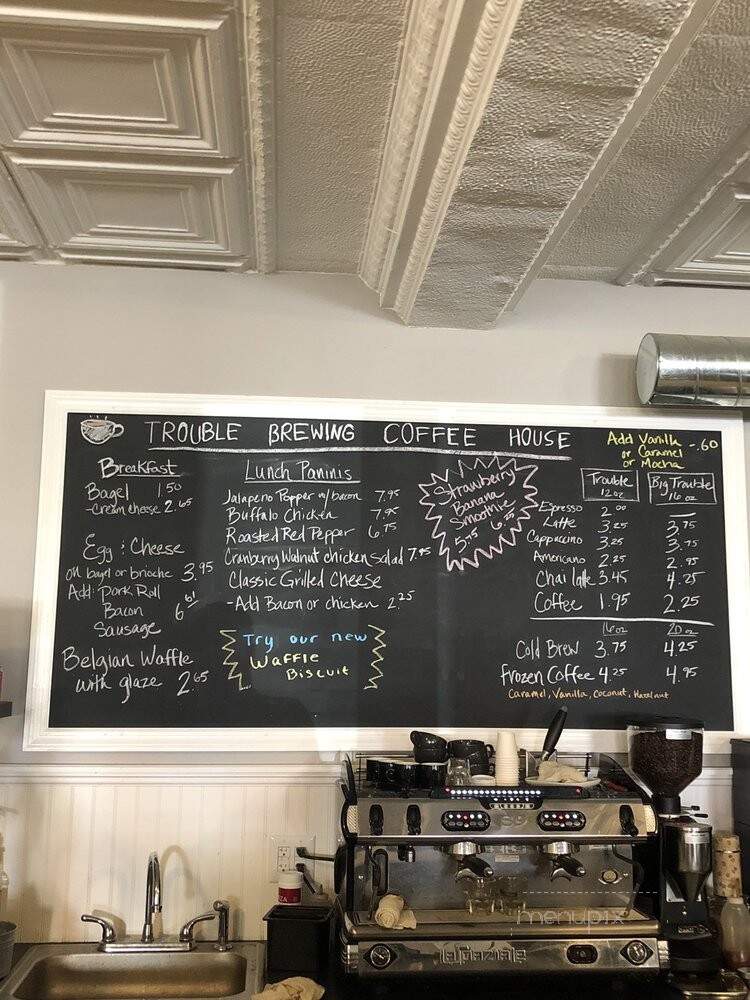 TROUBLE BREWING COFFEE HOUSE
Add Vanilla -.60
or Caramel
or Mocha
Breakfast
Bagel 1.50
-cream cheese 2.65
Egg & Cheese
on bagel or brioche 3.95
Add: Pork Roll
Bacon 6
Sausage
Belgian Waffle
with glaze 2.65
Lunch Paninis
Jalapeno Popper w/ bacon 7.95
Buffalo Chicken 7.95
Roasted Red Pepper 6.75
Cranberry Walnut chicken salad 7.95
Classic Grilled Cheese
-Add Bacon or chicken 2.25
Try our new
Waffle
Biscuit
Strawberry
Banana
Smoothie
5.75 6.25
Trouble Big Trouble
12 oz 16 oz
Espresso 2.00 —
Latte 3.25 3.75
Cappuccino 3.25 3.75
Americano 2.25 2.95
Chai latte 3.45 4.25
Coffee 1.95 2.25
16oz 20oz
Cold Brew 3.75 4.25
Frozen Coffee 4.25 4.95
Caramel, Vanilla, Coconut, Hazelnut
menupix